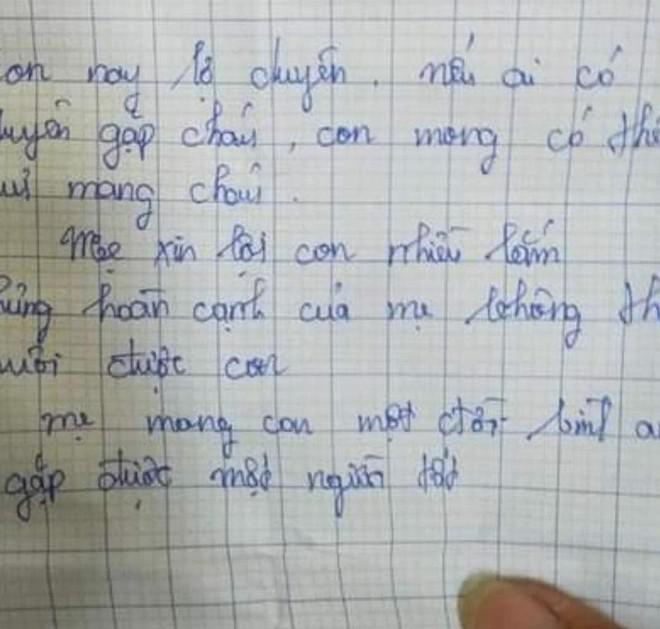 on nay lỡ chuyến. nếu ai có
duyên gặp cháu, con mong có thể
mang cháu.
Mẹ xin lỗi con nhiều lắm
hoàn cạnh của mẹ không th
được con
mẹ mong con một đời bình a
gặp được một người tốt